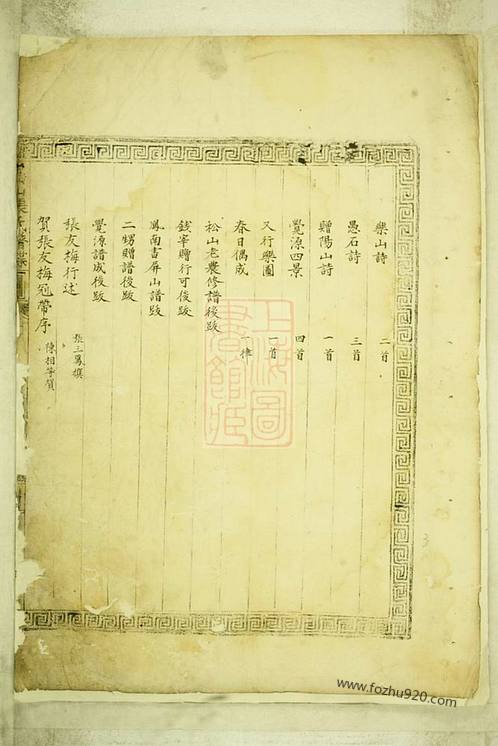 樂山詩 二首
愚石詩 三首
贈陽山詩 一首
覺源四景 四首
又行樂圖 一首
春日偶成 一律
松山老農修譜後跋
錢峯贈行可後跋
鳳南書屏山譜跋
二甥贈譜後跋
覺源譜成後跋
張友梅行述 張三鳳撰
賀張友梅冠帶序 陳相等賀
上海圖書館藏
www.fozhu920.com